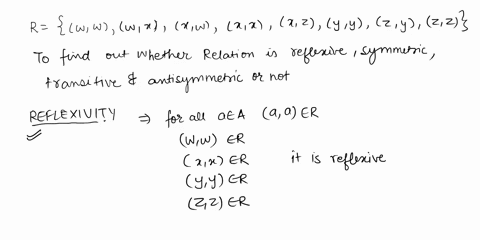 R = {(w,w), (w,x), (x,w), (x,x), (x,z), (y,y), (z,y), (z,z)}
To find out whether Relation is reflexive, symmetric,
transitive & antisymmetric or not
REFLEXIVITY ⇒ for all a∈A (a,a)∈R
(w,w) ∈R
(x,x)∈R it is reflexive
(y,y)∈R
(z,z)∈R